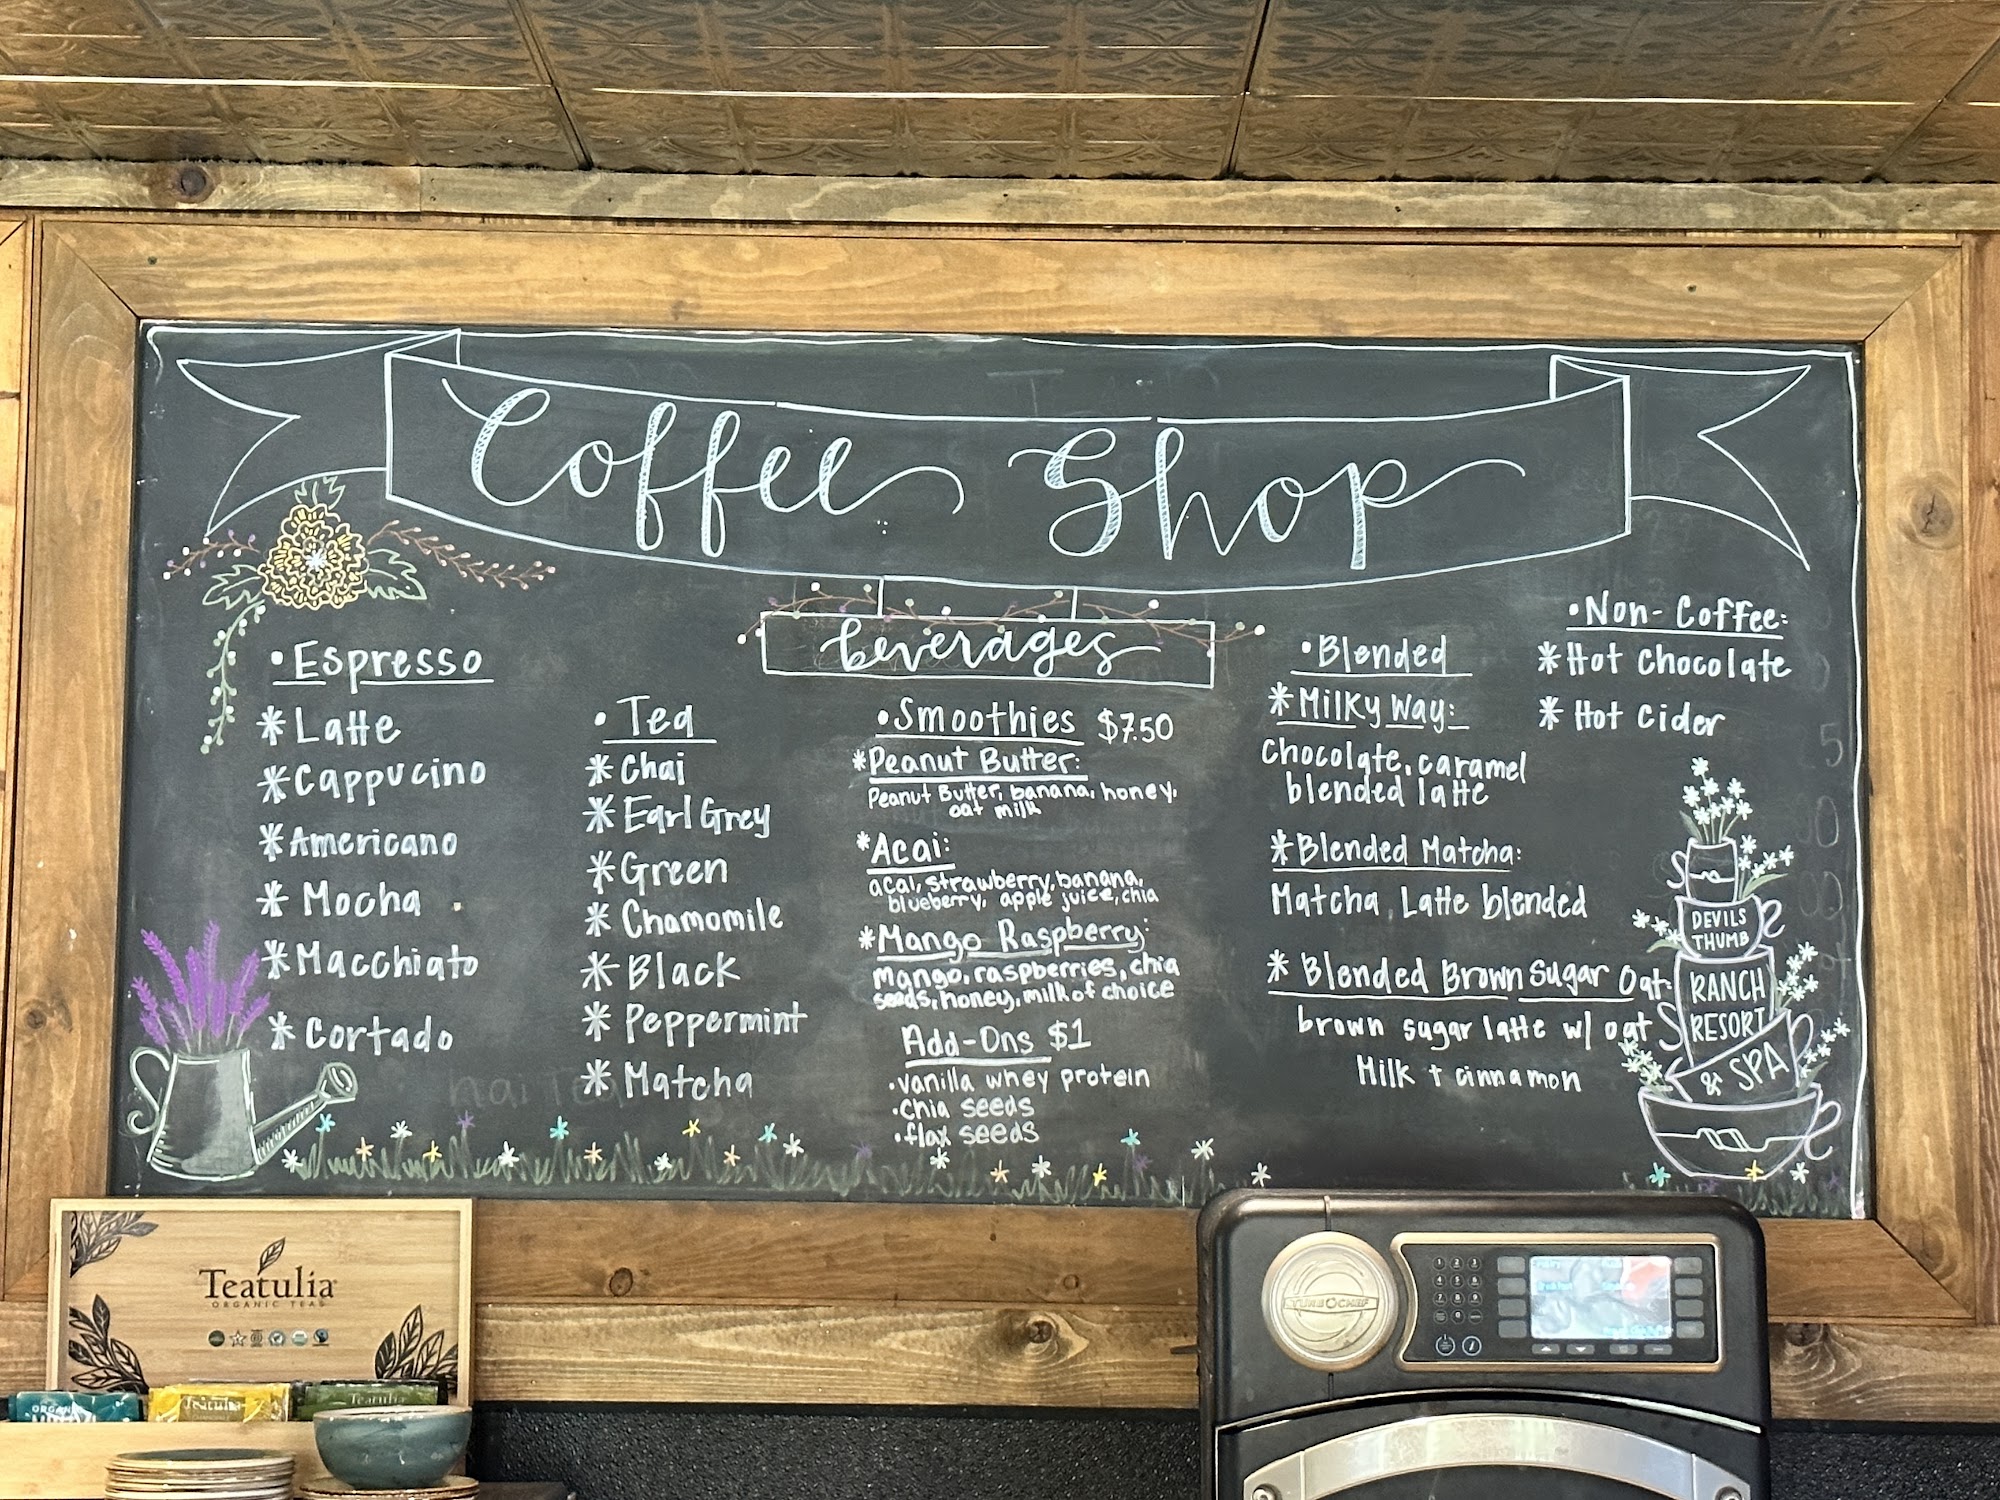 Coffee Shop
beverages
• Espresso
* Latte
* Cappucino
* Americano
* Mocha
* Macchiato
* Cortado
• Tea
* Chai
* Earl Grey
* Green
* Chamomile
* Black
* Peppermint
* Matcha
• Smoothies $7.50
* Peanut Butter:
Peanut Butter, banana, honey,
oat milk
* Acai:
acai, strawberry, banana,
blueberry, apple juice, chia
* Mango Raspberry:
mango, raspberries, chia
seeds, honey, milk of choice
Add-Ons $1
• vanilla whey protein
• chia seeds
• flax seeds
• Blended
* Milky Way:
Chocolate, caramel
blended latte
* Blended Matcha:
Matcha Latte blended
* Blended Brown Sugar Oat:
brown sugar latte w/ oat
Milk + cinnamon
• Non-Coffee:
* Hot Chocolate
* Hot Cider
DEVILS
THUMB
RANCH
RESORT
& SPA
Teatulia
ORGANIC TEAS
Teatulia
Teatulia
TURBOCHEF